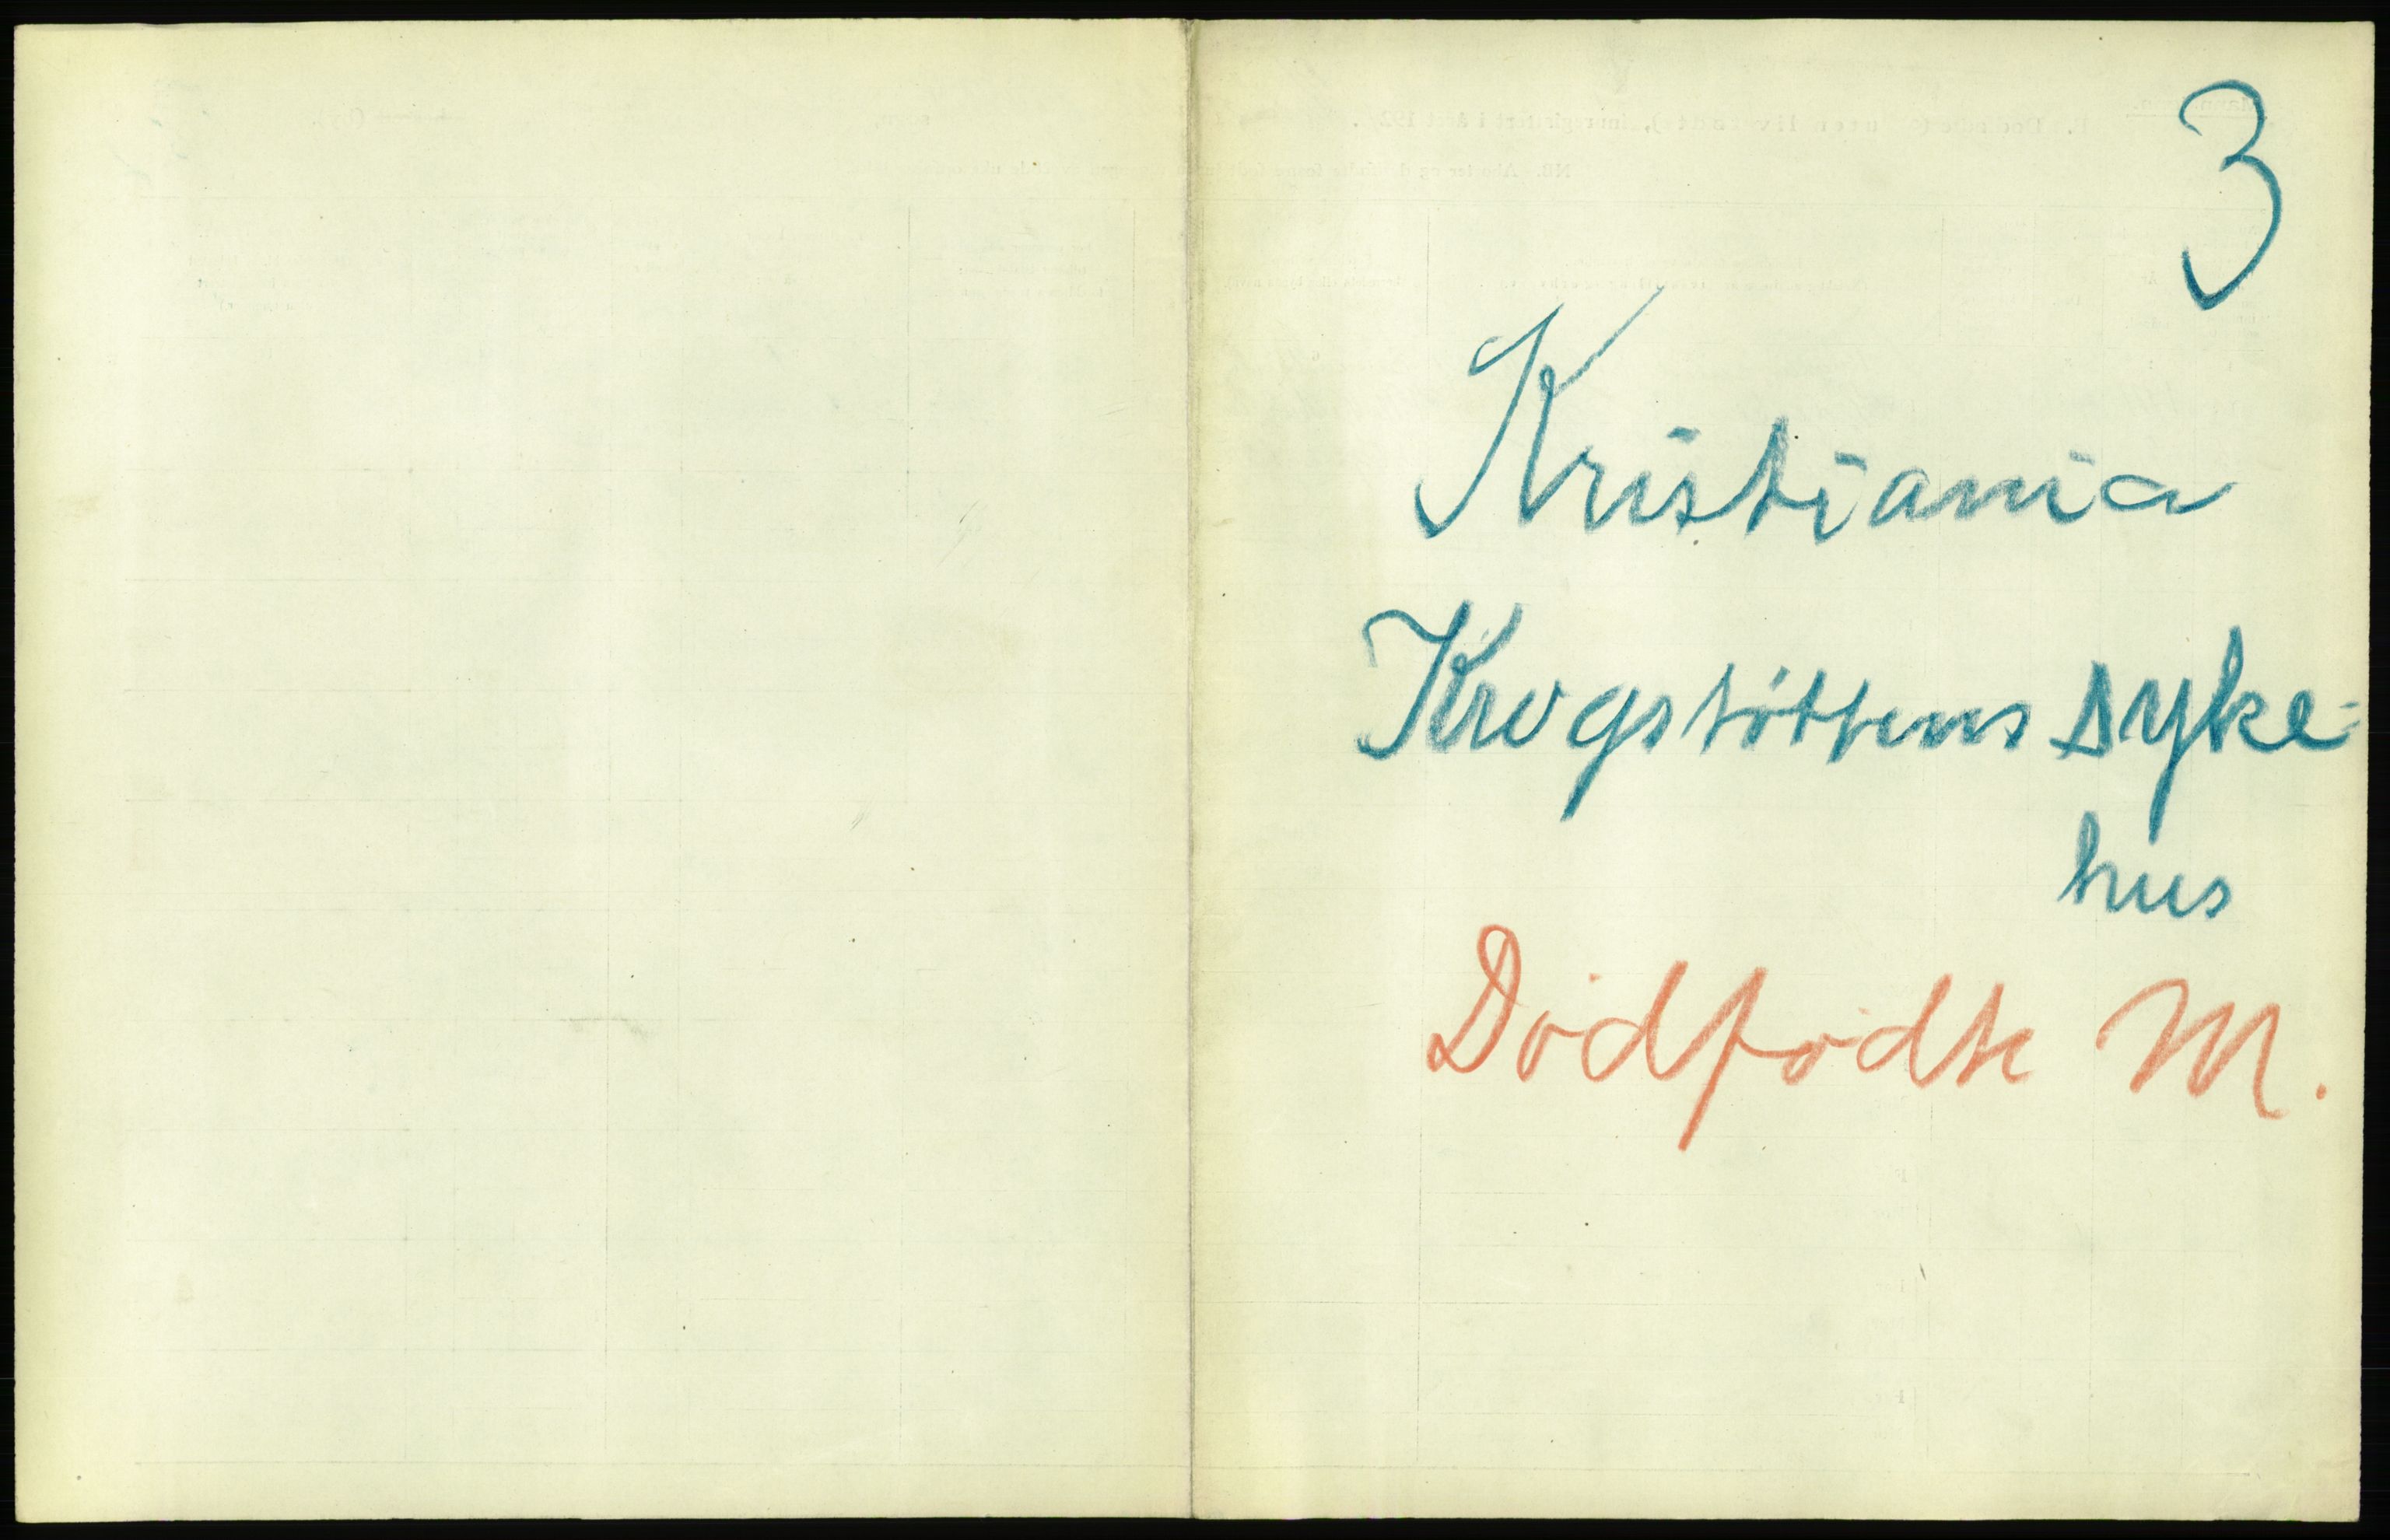 3
Kristiania
Krogstøttens syke-
hus
Dødfødte M.